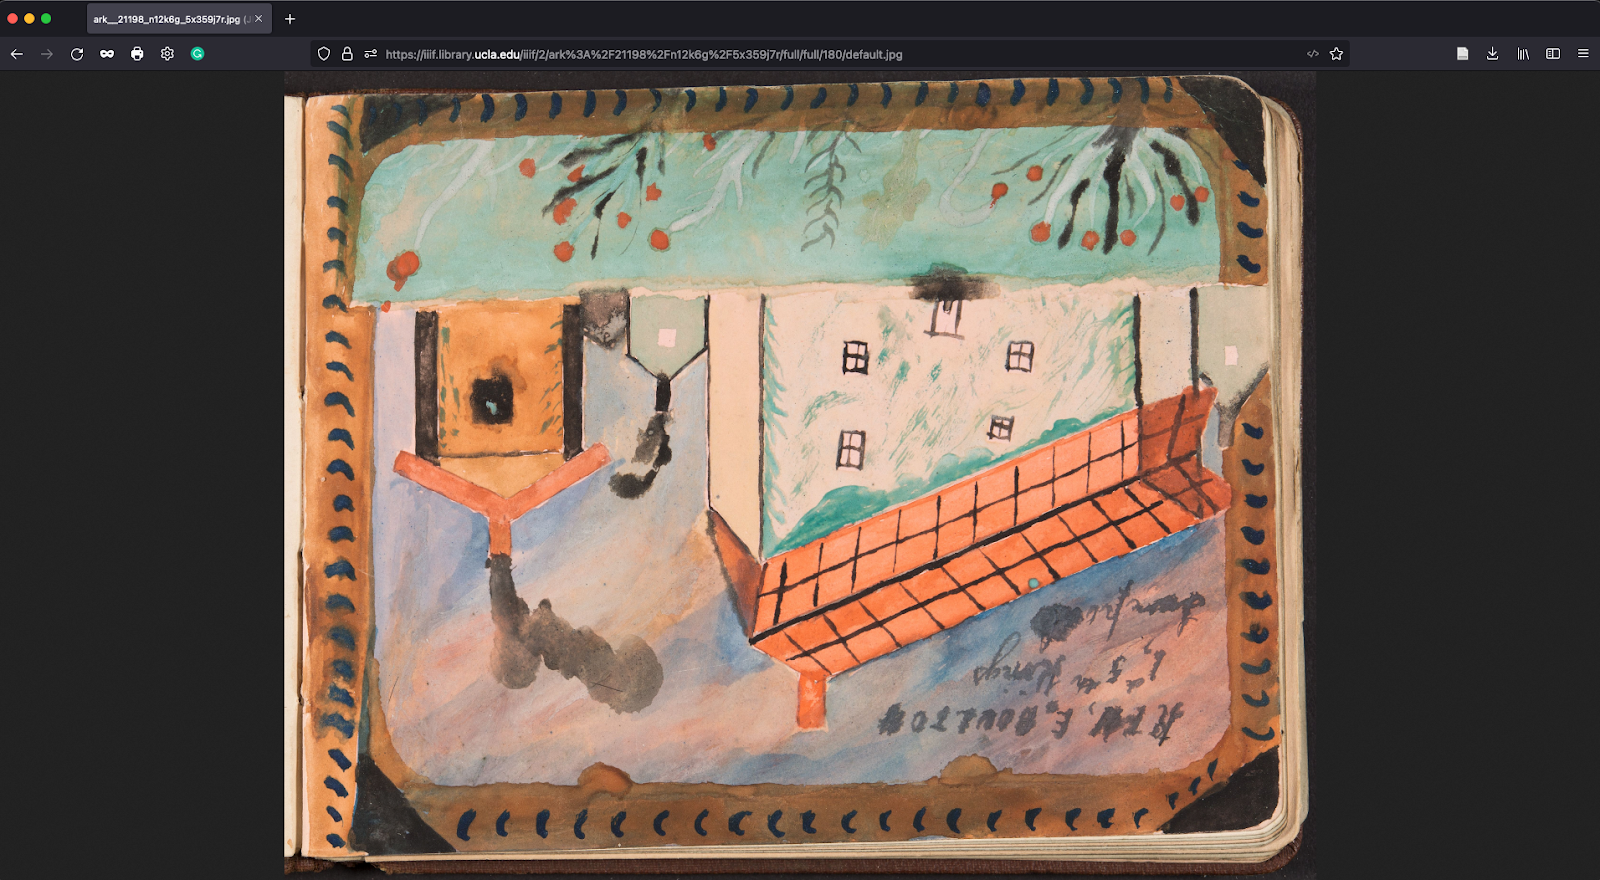 ark__21198_n12k6g_5x359j7r.jpg (J
https://iiif.library.ucla.edu/iiif/2/ark%3A%2F21198%2Fn12k6g%2F5x359j7r/full/full/180/default.jpg
RFN, E. BOULTON
Kings